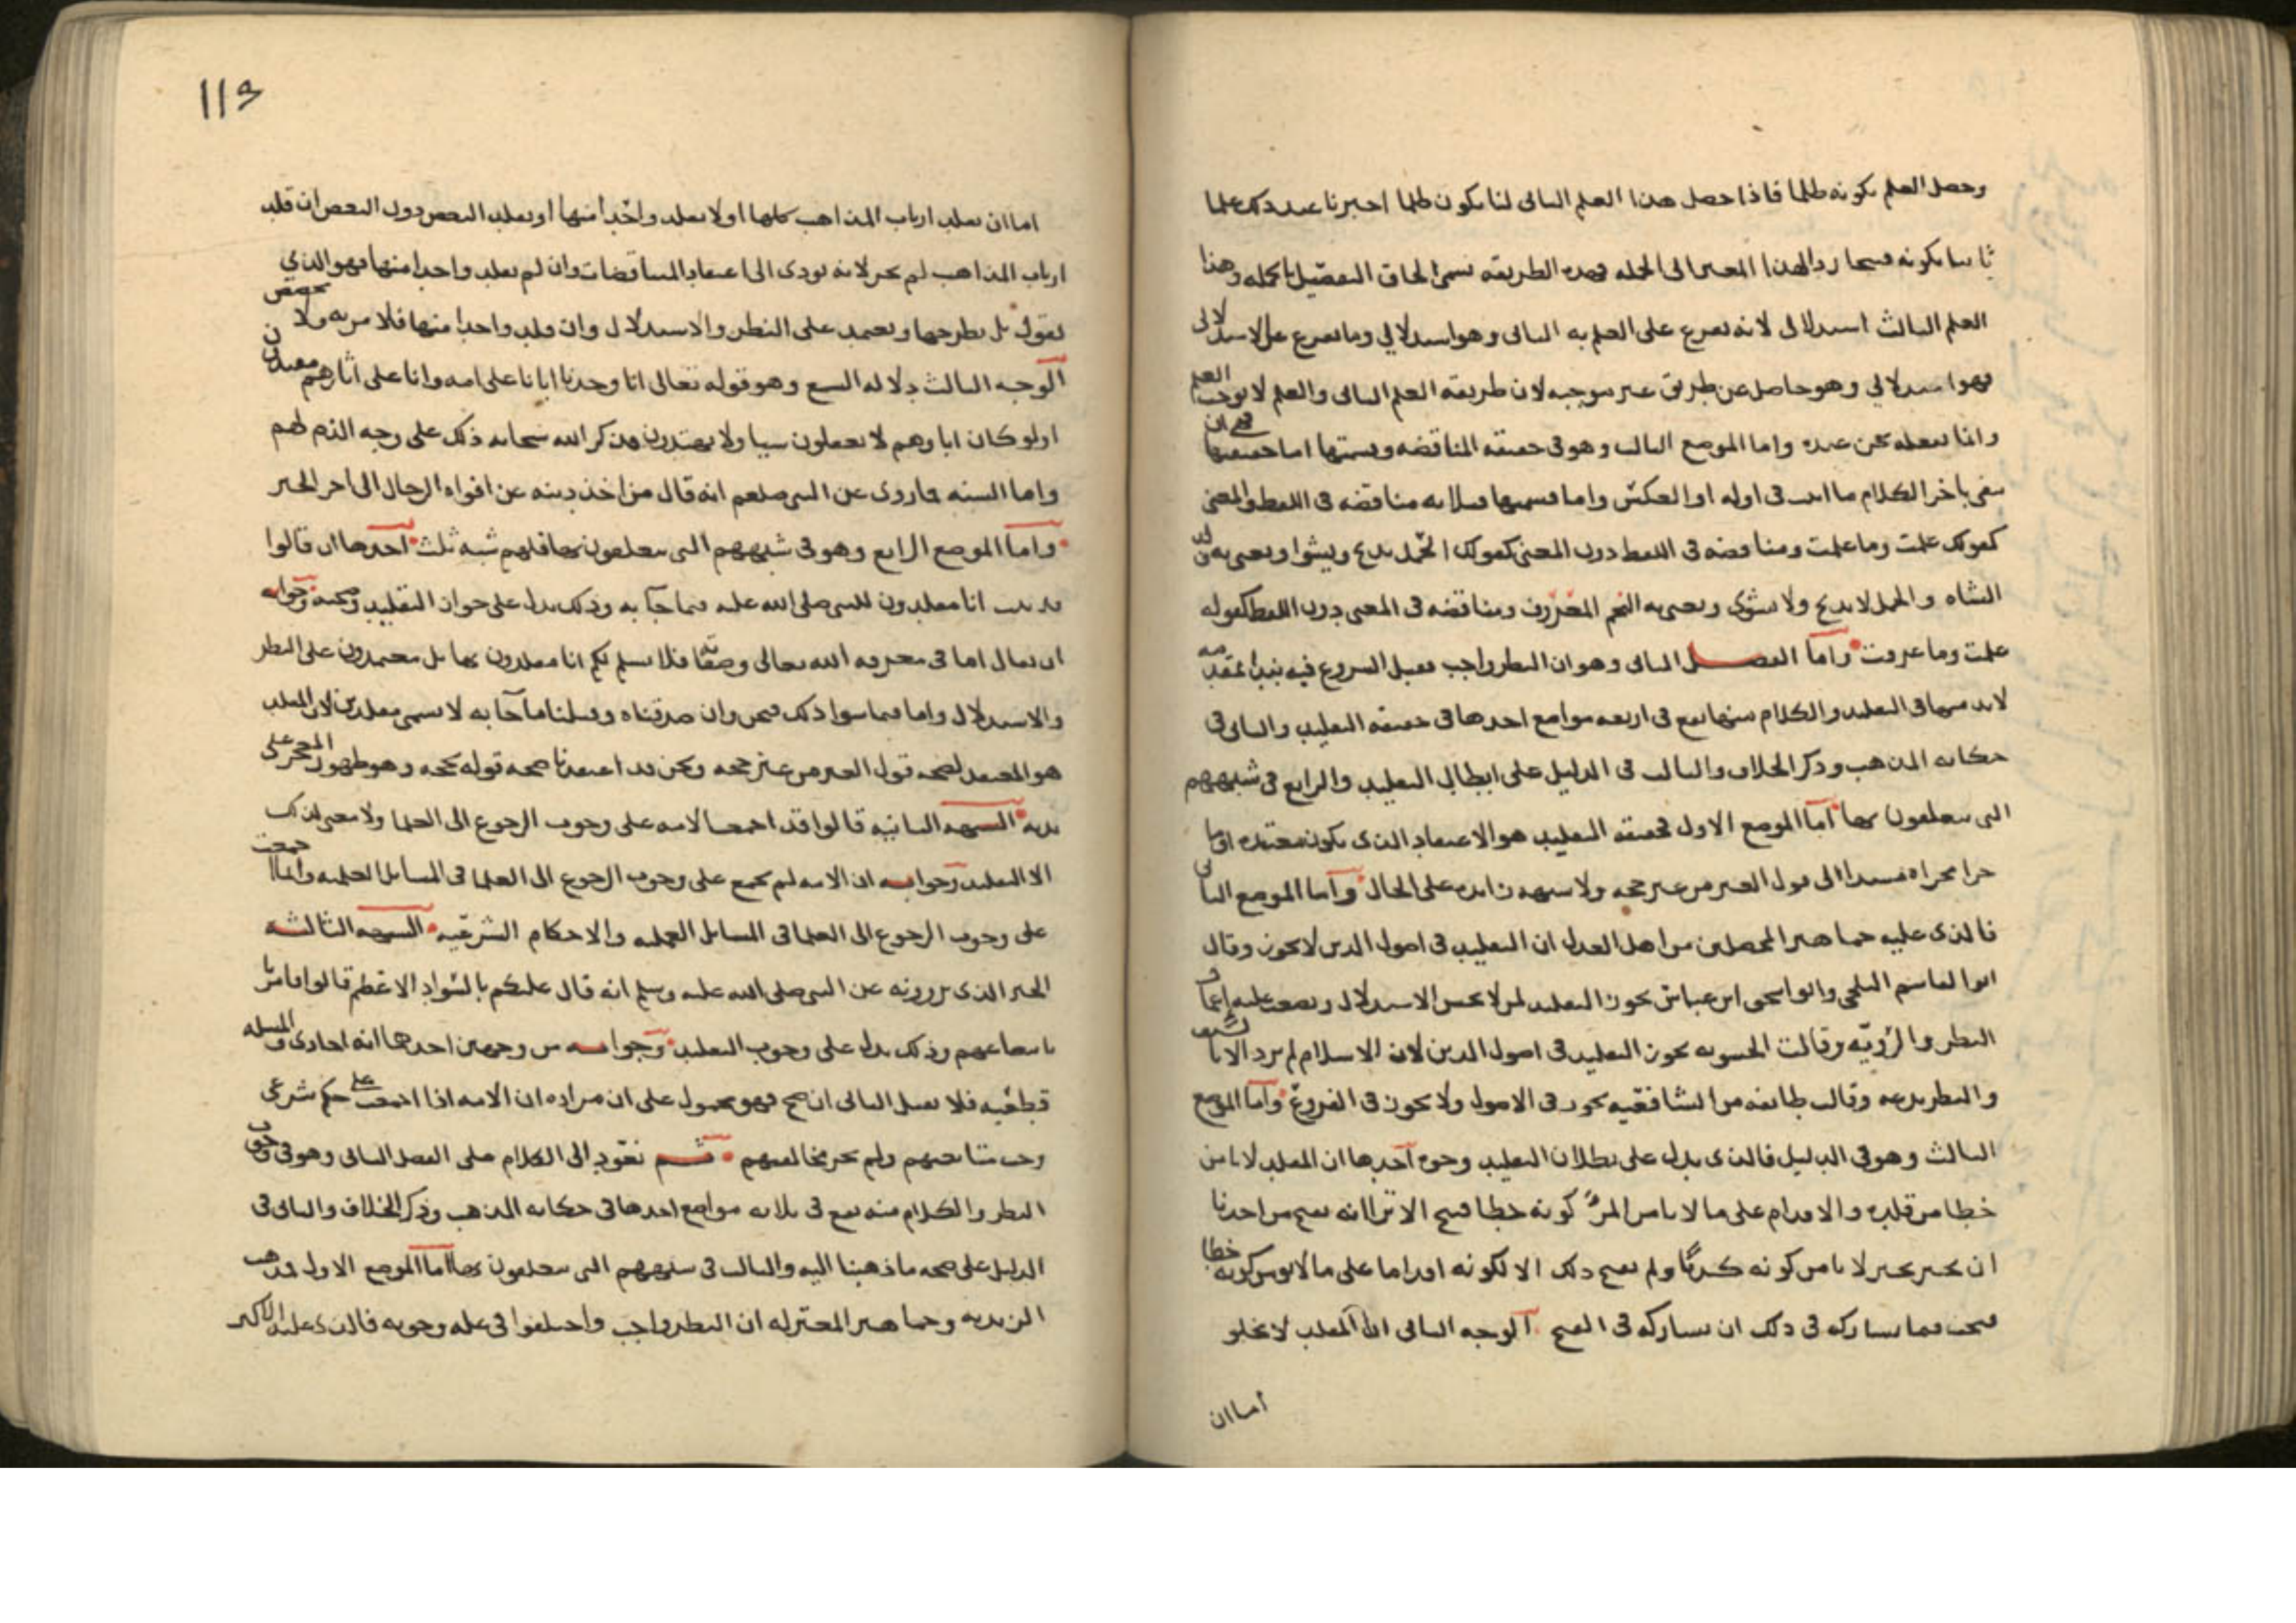 وحصل العلم بكونه ظلما فاذا حصل هذا العلم الثاني لنا بكون ظلما اخبرنا عند ذلك علما
ثالثا بكونه قبيحا ردا لهذا المعين الى الجمله فهذه الطريقه تسمى الحاق التفصيل بالجمله وهذا
العلم الثالث استدلال لانه تفرع على العلم به الثاني وهو استدلالي وما تفرع على الاستدلالي
فهو استدلالي وهو حاصل عن طريق غير موجبه لان طريقه العلم الثاني والعلم لا يوجب العلم
وانما نفعله نحن عنده واما الموضع الثالث وهو في حقيقه المناقضه وقسمتها اما حقيقتها فهي ان
نفى باخر الكلام ما اثبت في اوله او العكس واما قسمتها فثلاثه مناقضه في اللفظ والمعنى
كقولك علمت وما علمت ومناقضه في اللفظ دون المعنى كقولك الحمل يذبح ويشوا ويعني به ولد
الشاه والحمل لا يذبح ولا يشوى ويعني به النجم المعروف ومناقضه في المعنى دون اللفظ كقوله
علمت وما عرفت واما الفصل الثاني وهو ان النظر واجب فقبل الشروع فيه نبدا بمقدمه
لابد منها في التقليد والكلام منها يقع في اربعه مواضع احدها في حقيقه التقليد والثاني في
حكايه المذهب وذكر الخلاف والثالث في الدليل على ابطال التقليد والرابع في شبههم
التي يتعلقون بها اما الموضع الاول فحقيقه التقليد هو الاعتقاد الذي يكون معتقده او ما
جرا مجراه مستندا الى قول الغير من غير حجه ولا شبهه زايده على الحال واما الموضع الثاني
فالذي عليه جماهير المحصلين من اهل العدل ان التقليد في اصول الدين لا يجوز وقال
ابو القاسم البلخي وابو اسحق ابن عياش يجوز التقليد لمن لا يحسن الاستدلال ويصعب عليه
النظر والرويه وقالت الحشويه يجوز التقليد في اصول الدين لان الاسلام لم يرد الا بالسيف
والنظر بدعه وقالت طايفه من الشافعيه يجوز في الاصول ولا يجوز في الفروع واما الموضع
الثالث وهو في الدليل فالذي يدل على بطلان التقليد وجوه احدها ان المقلد لا يامن
خطا من قلده والاقدام على ما لا يامن المر كونه خطا قبيح الا ترا انه يقبح من احدنا
ان يخبر بخبر لا يامن كونه كذبا ولم يقبح ذلك الا لكونه اقداما على ما لا يومن كونه خطا
فيجب فيما يشاركه في ذلك ان يشاركه في القبح الوجه الثاني ان المقلد لا يخلو
اما ان
113
اما ان يقلد ارباب المذاهب كلها او لا يقلد واحدا منها او يقلد البعض دون البعض ان قلد
ارباب المذاهب لم يجز لانه يودى الى اعتقاد المتناقضات وان لم يقلد واحدا منها فهو الذي
نقول بل يطرحها ويعتمد على النظر والاستدلال وان قلد واحدا منها فلا مزيه ولا مخصص
الوجه الثالث دلاله السمع وهو قوله تعالى انا وجدنا ابانا على امه وانا على اثارهم مقتدون
اولو كان اباوهم لا يعقلون شيا ولا يهتدون فذكر الله سبحانه ذلك على وجه الذم لهم
واما السنه فما روى عن النبي صلعم انه قال من اخذ دينه عن افواه الرجال الى اخر الخبر
واما الموضع الرابع وهو في شبههم التي يتعلقون بها فلهم شبه ثلث احدها ان قالوا
قد ثبت انا مقلدون للنبي صلى الله عليه فيما جآ به وذلك يدل على جواز التقليد وصحته وجوابه
ان يقال اما في معرفه الله تعالى وصفاته فلا نسلم لكم انا مقلدون بها بل معتمدون على النظر
والاستدلال واما فيما سوا ذلك فنحن وان صدقناه وقبلنا ما جآ به لا نسمى مقلدين لان المقلد
هو المعتقد لصحه قول الغير من غير حجه ونحن قد اعتقدنا صحه قوله بحجه وهو ظهور المعجز على
يديه الشبهه الثانيه قالوا قد اجمعت الامه على وجوب الرجوع الى العلما ولا معنى لذلك
الا التقليد وجوابه ان الامه لم تجمع على وجوب الرجوع الى العلما في المسايل العلميه وانما اجمعت
على وجوب الرجوع الى العلما في المسايل العمليه والاحكام الشرعيه الشبهه الثالثه
الخبر الذي يروونه عن النبي صلى الله عليه وسلم انه قال عليكم بالسواد الاعظم قالوا فامرنا
باتباعهم وذلك يدل على وجوب التقليد وجوابه من وجهين احدهما انه احادي والمسله
قطعيه فلا يقبل الثاني ان صح فهو محمول على ان مراده ان الامه اذا اجمعت على حكم شرعى
وجب متابعتهم ولم يجز مخالفتهم ثم نعود الى الكلام على الفصل الثاني وهو في وجوب
النظر والكلام منه يقع في ثلاثه مواضع احدها في حكايه المذهب وذكر الخلاف والثاني في
الدليل على صحه ما ذهبنا اليه والثالث في شبههم التي يتعلقون بها اما الموضع الاول فمذهب
الزيديه وجماهير المعتزله ان النظر واجب واختلفوا في عله وجوبه فالذي عليه الاكثر